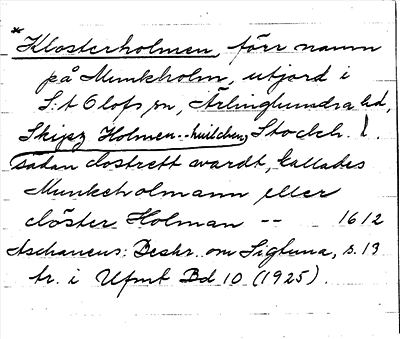 * Klosterholmen, förr namn
på Munkholm, utjord i
S:t Olofs sn, Ärlinghundra hd,
Stockh. l.
Skijsz Holmen -- huilchen,
sådan closterett wardt, kallades
Munckeholmann eller
clöster Holman -- 1612
Aschaneus: Beskr. om Sigtuna, s. 13
tr. i Ufmt Bd 10 (1925).